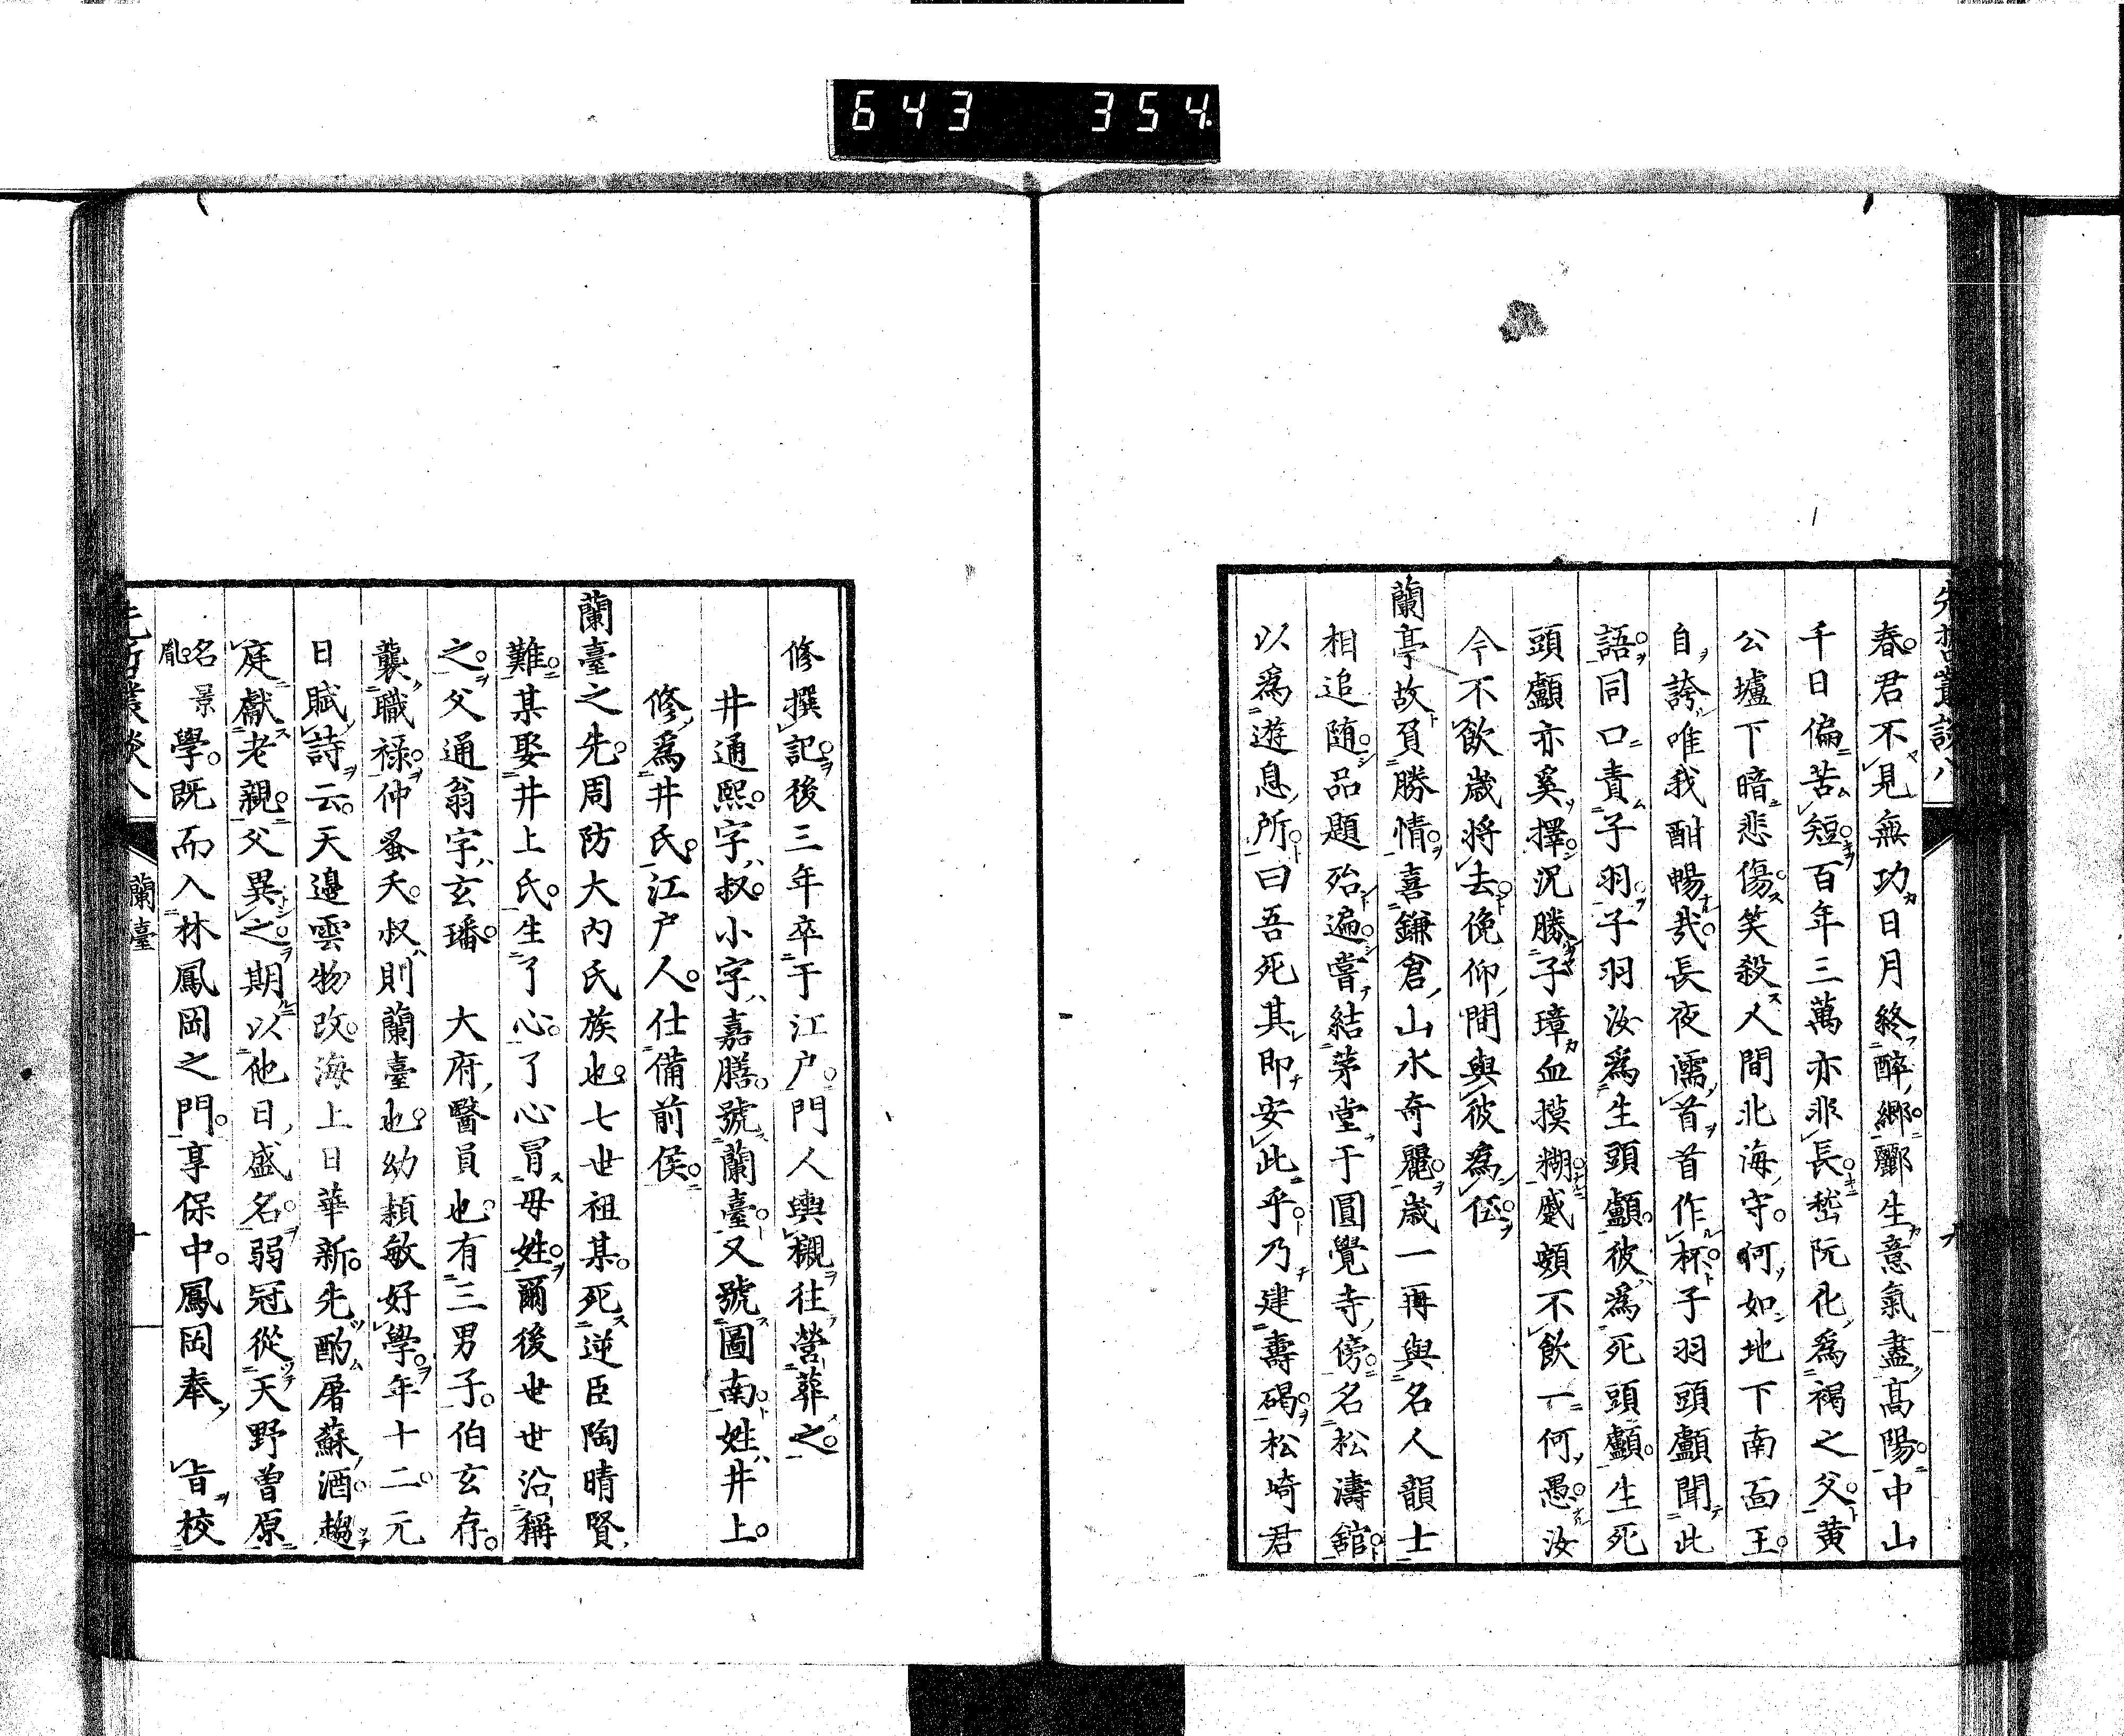 643 354
春君不見無功日月終醉鄕酈生意氣盡高陽中山
千日偏苦短百年三萬亦非長嵆阮化爲褐之父黄
公壚下暗悲傷笑殺人間北海守何如地下南面王
自誇唯我酣暢哉長夜濡首首作杯子羽頭顱聞此
語同口責子羽子羽汝爲生頭顱彼爲死頭顱生死
頭顱亦奚擇況勝子璋血摸糊蹙頞不飮一何愚汝
今不飮歲將去俛仰間與彼爲伍
蘭亭故負勝情喜鎌倉山水奇麗歲一再與名人韻士
相追随品題殆遍嘗結茅堂于圓覺寺傍名松濤舘
以爲遊息所曰吾死其即安此乎乃建壽碣松崎君
修撰記後三年卒于江户門人輿櫬往營葬之
井通熙字叔小字嘉膳號蘭臺又號圖南姓井上
修爲井氏江户人仕備前侯
蘭臺之先周防大内氏族也七世祖某死逆臣陶晴賢
難某娶井上氏生了心了心冐母姓爾後世世沿稱
之父通翁字玄璠 大府醫員也有三男子伯玄存
襲職祿仲蚤夭叔則蘭臺也幼頴敏好學年十二元
日賦詩云天邉雲物改海上日華新先酌屠蘇酒趨
庭獻老親父異之期以他日盛名弱冠從天野曽原
名景胤學既而入林鳳岡之門享保中鳳岡奉 旨校
蘭臺